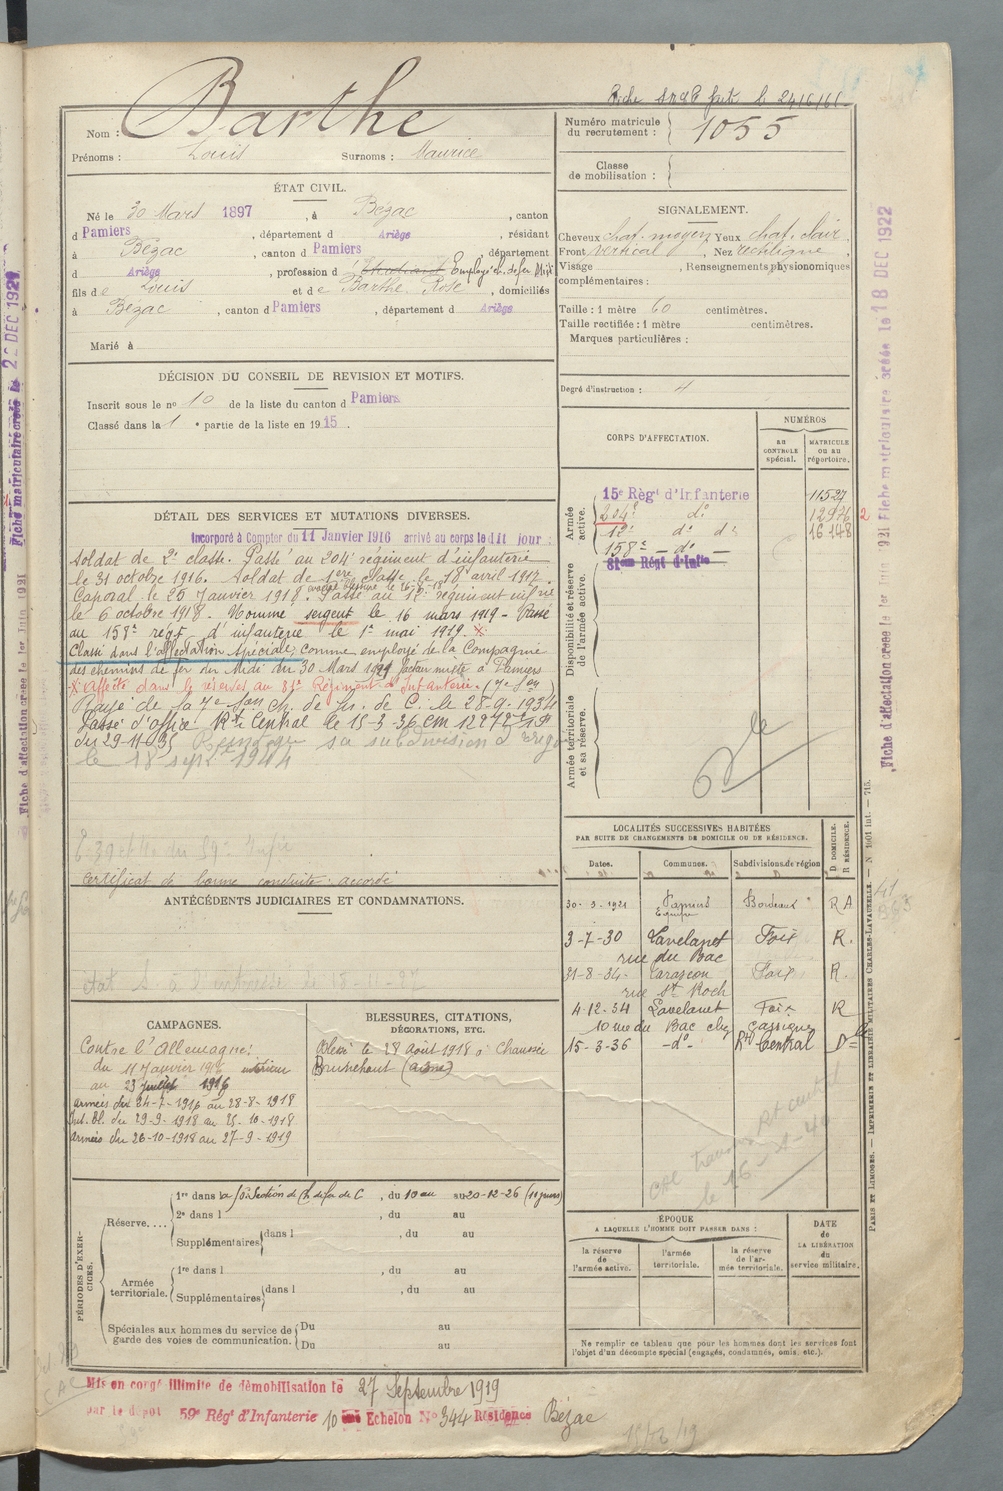 Fiche faite le 24/6/61
Nom : Barthe
Prénoms : Louis Surnoms : Maurice
Numéro matricule du recrutement : 1055
Classe de mobilisation :
ÉTAT CIVIL.
Né le 30 Mars 1897, à Bézac, canton
d Pamiers, département d Ariège, résidant
à Bézac, canton d Pamiers, département
d Ariège, profession d Étudiant Employé ch. de fer Midi
fils de Louis et de Barthe Rose, domiciliés
à Bézac, canton d Pamiers, département d Ariège
Marié à
SIGNALEMENT.
Cheveux chat. moyen Yeux chat. clair
Front vertical, Nez rectiligne
Visage , Renseignements physionomiques
complémentaires :
Taille : 1 mètre 60 centimètres.
Taille rectifiée : 1 mètre centimètres.
Marques particulières :
Degré d'instruction : 4
DÉCISION DU CONSEIL DE REVISION ET MOTIFS.
Inscrit sous le nº 10 de la liste du canton d Pamiers
Classé dans la 1 e partie de la liste en 1915.
CORPS D'AFFECTATION.
NUMÉROS
au CONTROLE spécial.
MATRICULE ou au répertoire.
Armée active.
15e Régt d'Infanterie 11527
204e dº 12976 2
12e dº dº 16148
158e — dº —
81ème Régt d'Infie
Disponibilité et réserve de l'armée active.
Armée territoriale et sa réserve.
DÉTAIL DES SERVICES ET MUTATIONS DIVERSES.
Incorporé à Compter du 11 Janvier 1916 arrivé au corps le dit jour :
Soldat de 2e classe. Passé au 204e régiment d'infanterie
le 31 octobre 1916. Soldat de 1ère classe le 18 avril 1917.
Caporal le 25 Janvier 1918. Passé au régiment infrie
le 6 octobre 1918. Nommé sergent le 16 mars 1919 - Passé
au 158e régt d'infanterie le 1er mai 1919. X
Classé dans l'affectation spéciale, comme employé de la Compagnie
des chemins de fer du Midi du 30 Mars 1921 à Pamiers
X Affecté dans la réserve au 81e Régiment d'Infanterie.
Rayé de la 7e Son ch. de f. de C. le 28-9-1934
Passé d'office Rt Central le 15-3-36
du 29-11-35 sa subdivision d'origine
le 18 sept 1944
Certificat de bonne conduite : accordé
ANTÉCÉDENTS JUDICIAIRES ET CONDAMNATIONS.
LOCALITÉS SUCCESSIVES HABITÉES
PAR SUITE DE CHANGEMENTS DE DOMICILE OU DE RÉSIDENCE.
Dates. Communes. Subdivisions de région D. DOMICILE. R RÉSIDENCE.
30-3-1921 Pamiers Bordeaux R A
3-7-30 Lavelanet Foix R.
rue du Bac
31-8-34 Tarascon Foix R.
rue St Roch
4-12-34 Lavelanet Foix R
10 rue du Bac chez
15-3-36 -dº- Rt Central
CAMPAGNES.
Contre l'Allemagne :
du 11 Janvier 1916 intérieur
au 23 Juillet 1916
armées du 24-7-1916 au 28-8-1918
Int. Bl. du 29-9-1918 au 25-10-1918
armées du 26-10-1918 au 27-9-1919
BLESSURES, CITATIONS,
DÉCORATIONS, ETC.
Blessé le 28 Août 1918 à Chaussée
Brunehaut (aisne)
PÉRIODES D'EXERCICES.
Réserve....
1re dans la Section de Ch. de f. de C, du 10 au 20-12-26 (11 jours)
2e dans l , du au
Supplémentaires dans l , du au
Armée territoriale.
1re dans l , du au
Supplémentaires dans l , du au
Spéciales aux hommes du service de garde des voies de communication.
Du au
Du au
ÉPOQUE
A LAQUELLE L'HOMME DOIT PASSER DANS :
la réserve de l'armée active.
l'armée territoriale.
la réserve de l'armée territoriale.
DATE DE LA LIBÉRATION du service militaire.
Ne remplir ce tableau que pour les hommes dont les services font
l'objet d'un décompte spécial (engagés, condamnés, omis, etc.).
Mis en congé illimité de démobilisation le 27 Septembre 1919
par le dépôt 59e Régt d'Infanterie 10 Echelon Nº 344 Résidence Bézac
Fiche d'affectation créée le 1er Juin 1921 Fiche matriculaire créée le 18 DEC 1922
PARIS ET LIMOGES. — IMPRIMERIE ET LIBRAIRIE MILITAIRES CHARLES-LAVAUZELLE.